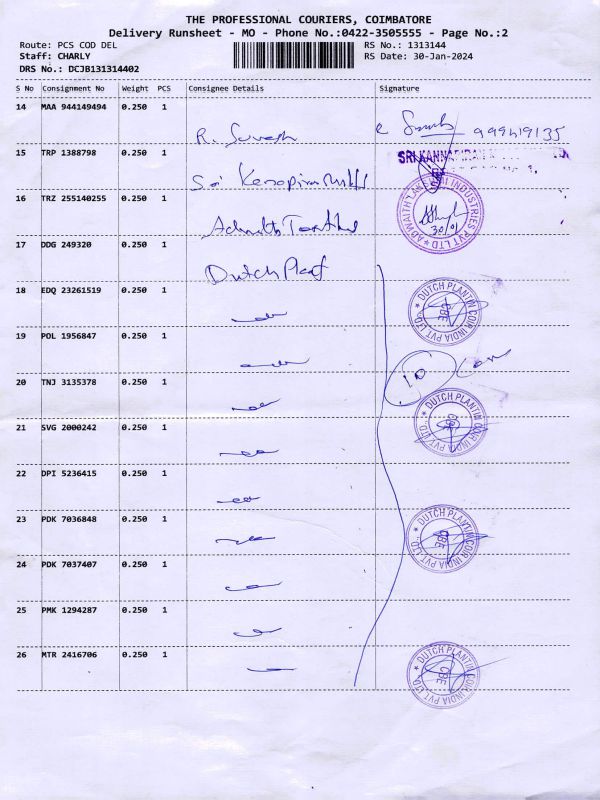 THE PROFESSIONAL COURIERS, COIMBATORE
Delivery Runsheet - MO - Phone No.:0422-3505555 - Page No.:2
Route: PCS COD DEL
RS No.: 1313144
Staff: CHARLY
RS Date: 30-Jan-2024
DRS No.: DCJB131314402
S No Consignment No Weight PCS Consignee Details Signature
14 MAA 944149494 0.250 1
R. Suresh
15 TRP 1388798 0.250 1
Sri
SRI KANNAPIRAN
16 TRZ 255140255 0.250 1
30/01
ADWAITH LAKSHMI INDUSTRIES PVT LTD
17 DDG 249320 0.250 1
Dutch Plant
18 EDQ 23261519 0.250 1
DUTCH PLANTIN COIR INDIA PVT LTD.
CBE
19 POL 1956847 0.250 1
10
20 TNJ 3135378 0.250 1
DUTCH PLANTIN COIR INDIA PVT LTD.
CBE
21 SVG 2000242 0.250 1
22 DPI 5236415 0.250 1
23 PDK 7036848 0.250 1
DUTCH PLANTIN COIR INDIA PVT LTD.
CBE
24 PDK 7037407 0.250 1
25 PMK 1294287 0.250 1
26 MTR 2416706 0.250 1
DUTCH PLANTIN COIR INDIA PVT LTD.
CBE